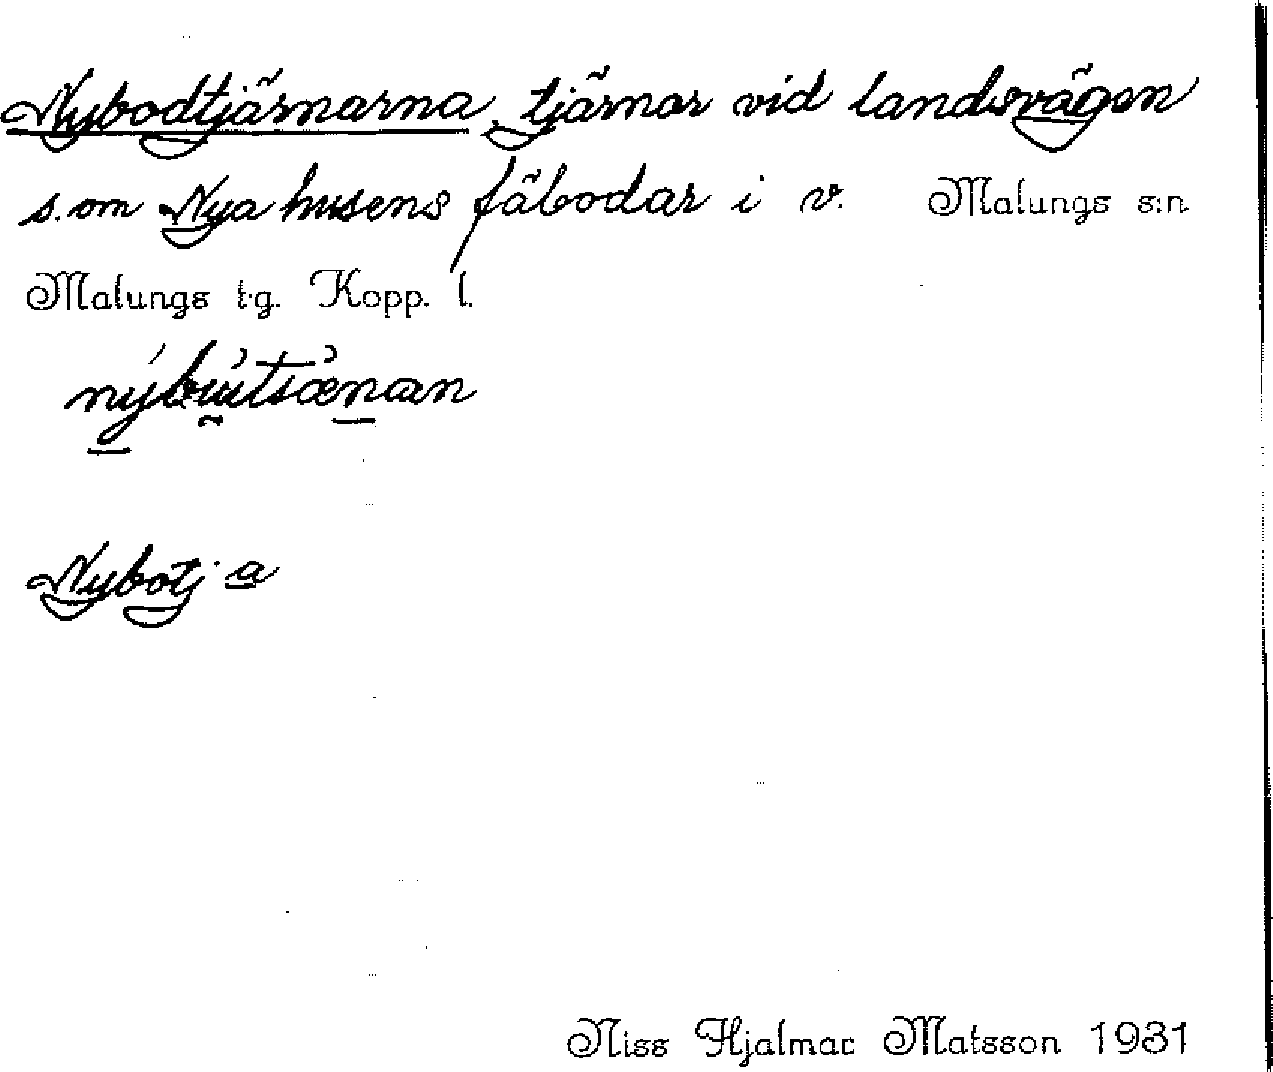 Nybodtjärnarna, tjärnar vid landsvägen
s. om Nya husens fäbodar i v. Malungs s:n
Malungs t.g. Kopp. l.
Nybotj a
Niss Hjalmar Matsson 1931